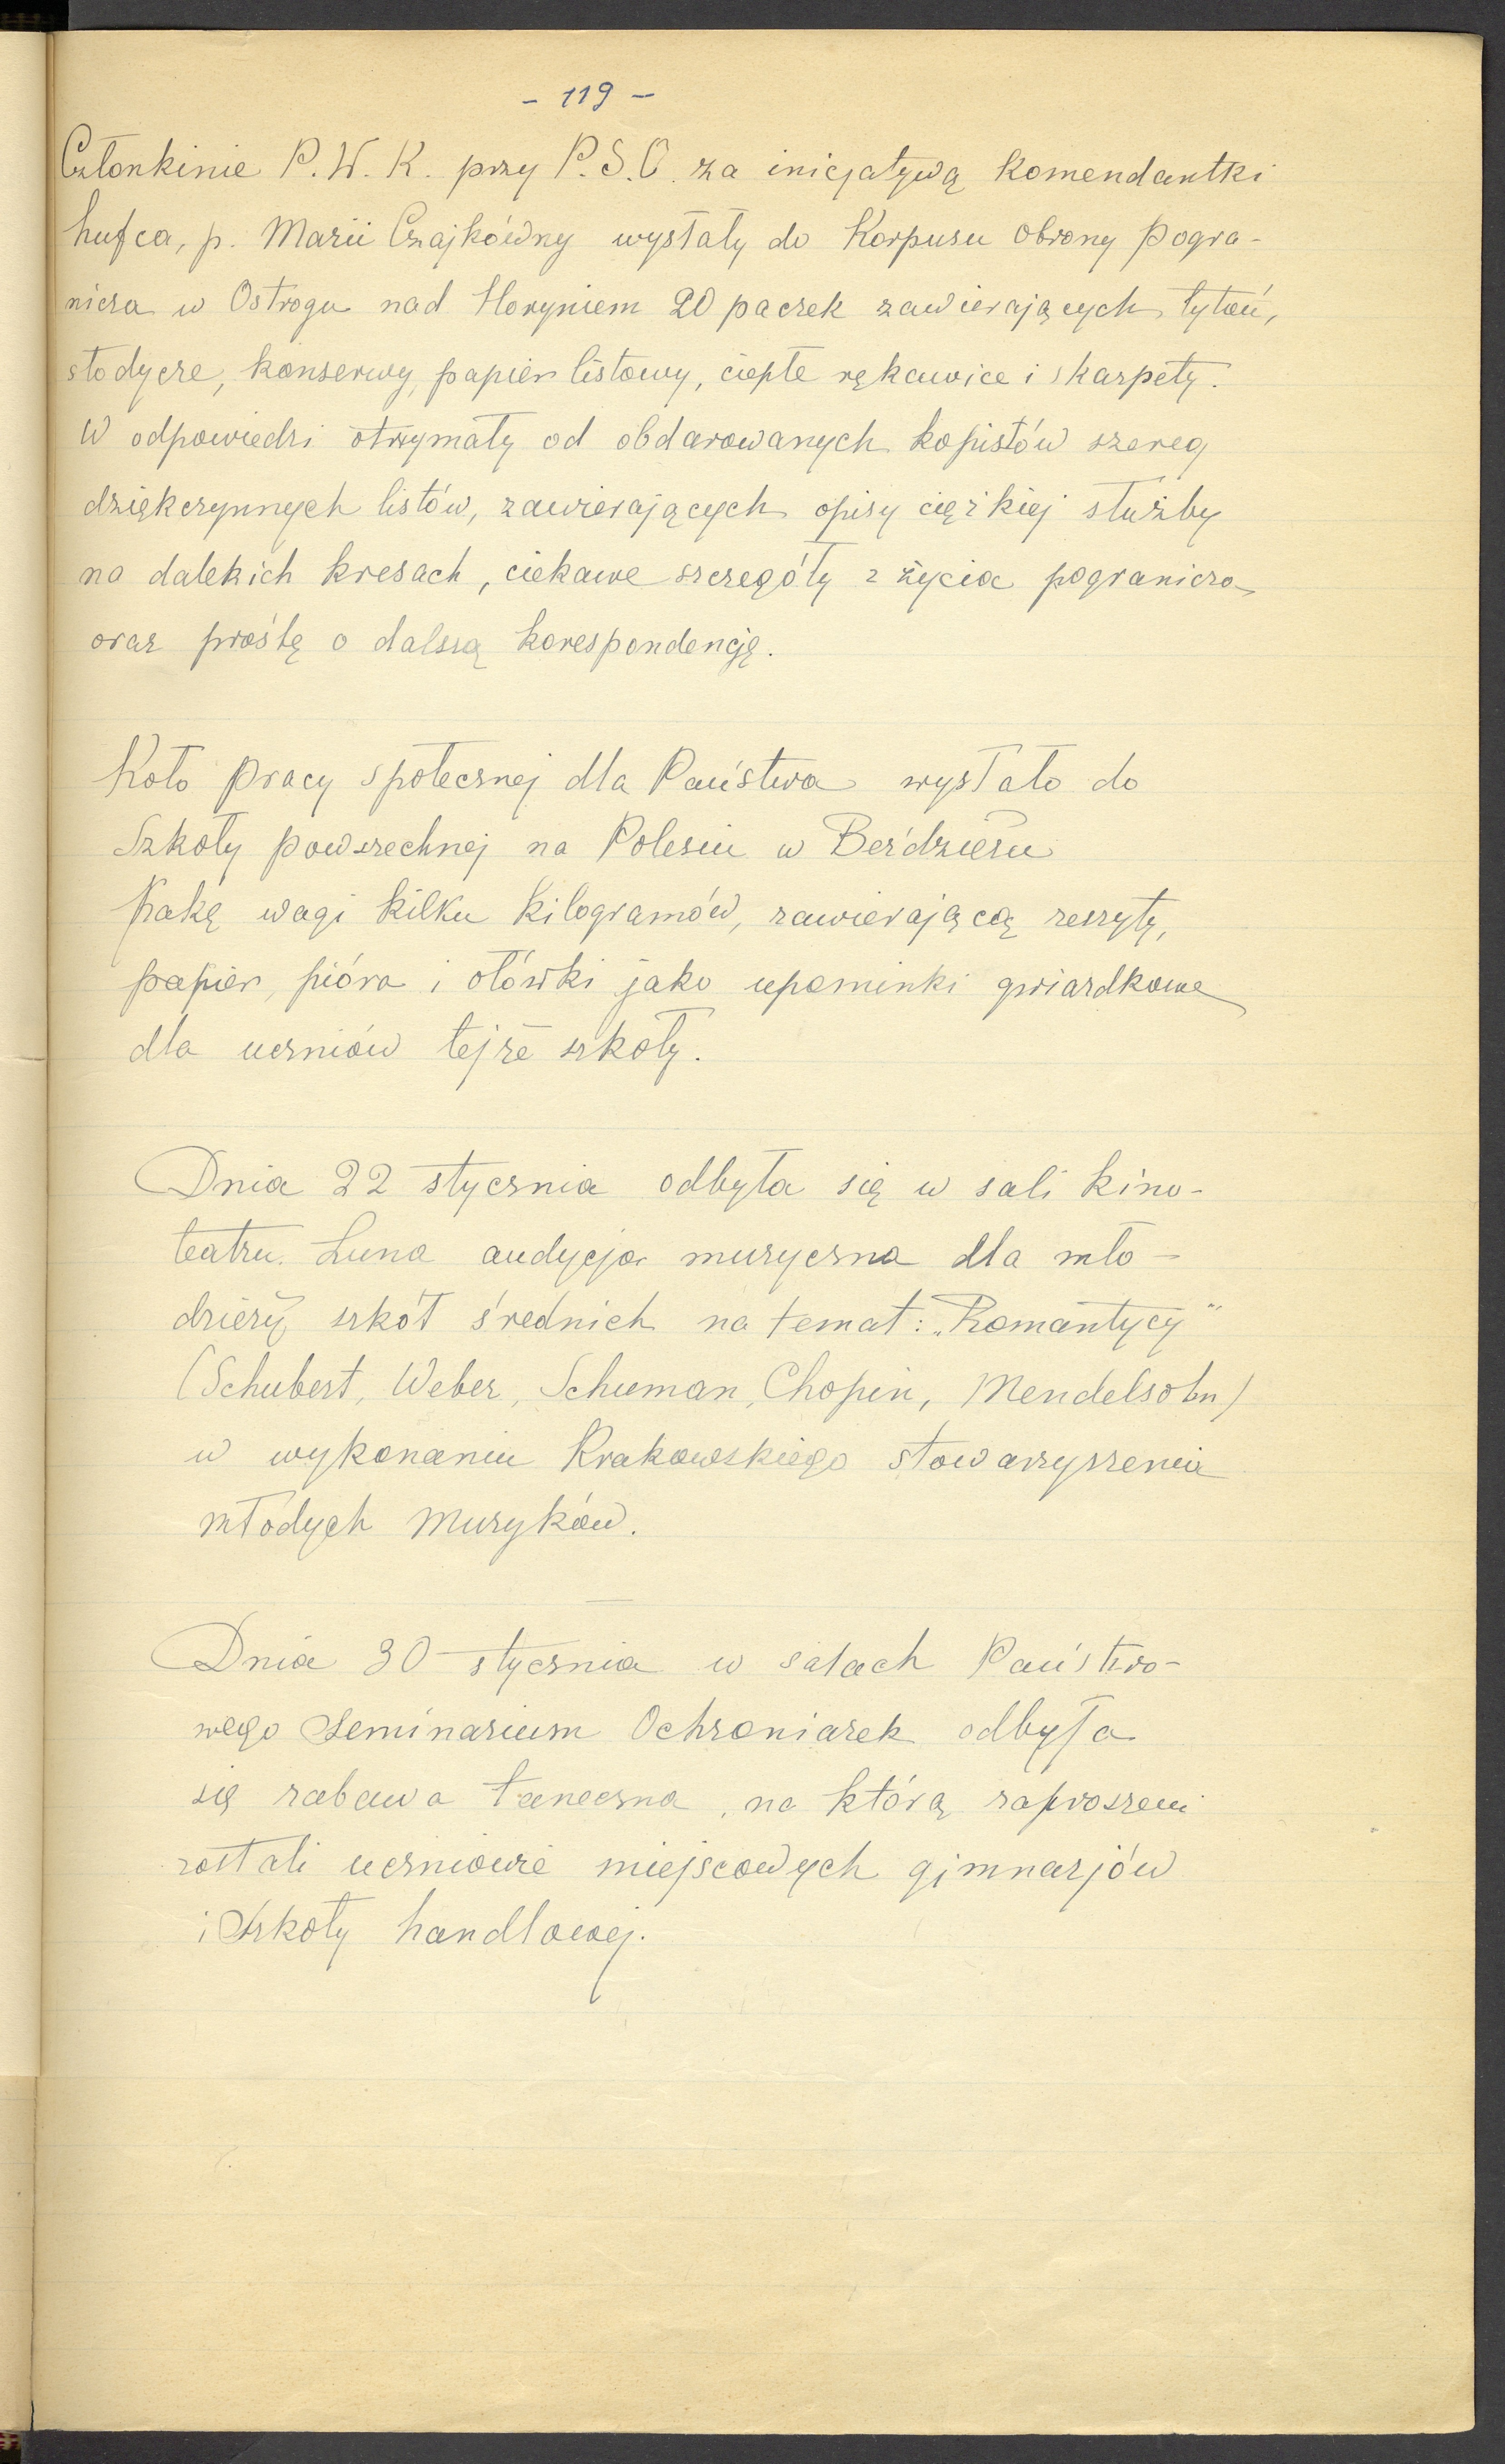 - 119 -
Członkinie P.W.K. przy P.S.O. za inicjatywą Komendantki
hufca, p. Marii Czajkówny wysłały do Korpusu Obrony Pogra-
nicza w Ostrogu nad Horyniem 20 paczek zawierających tytoń,
słodycze, konserwy, papier listowy, ciepłe rękawice i skarpety.
W odpowiedzi otrzymały od obdarowanych kopistów szereg
dziękczynnych listów, zawierających opisy ciężkiej służby
na dalekich kresach, ciekawe szczegóły z życia pogranicza
oraz prośbę o dalszą korespondencję.
Koło Pracy społecznej dla Państwa wysłało do
Szkoły powszechnej na Polesiu w
Pakę wagi kilku kilogramów, zawierającą zeszyty,
papier, pióra i ołówki jako upominki gwiazdkowe
dla uczniów tejże szkoły.
Dnia 22 stycznia odbyła się w sali kino-
teatru Luna audycja muzyczna dla mło-
dzieży szkół średnich na temat: „Romantycy"
(Schubert, Weber, Schuman, Chopin, Mendelsohn)
w wykonaniu Krakowskiego stowarzyszenia
młodych muzyków.
Dnia 30 stycznia w salach Państwo-
wego Seminarium Ochroniarek odbyła
się zabawa taneczna, na którą zaproszeni
zostali uczniowie miejscowych gimnazjów
i Szkoły handlowej.